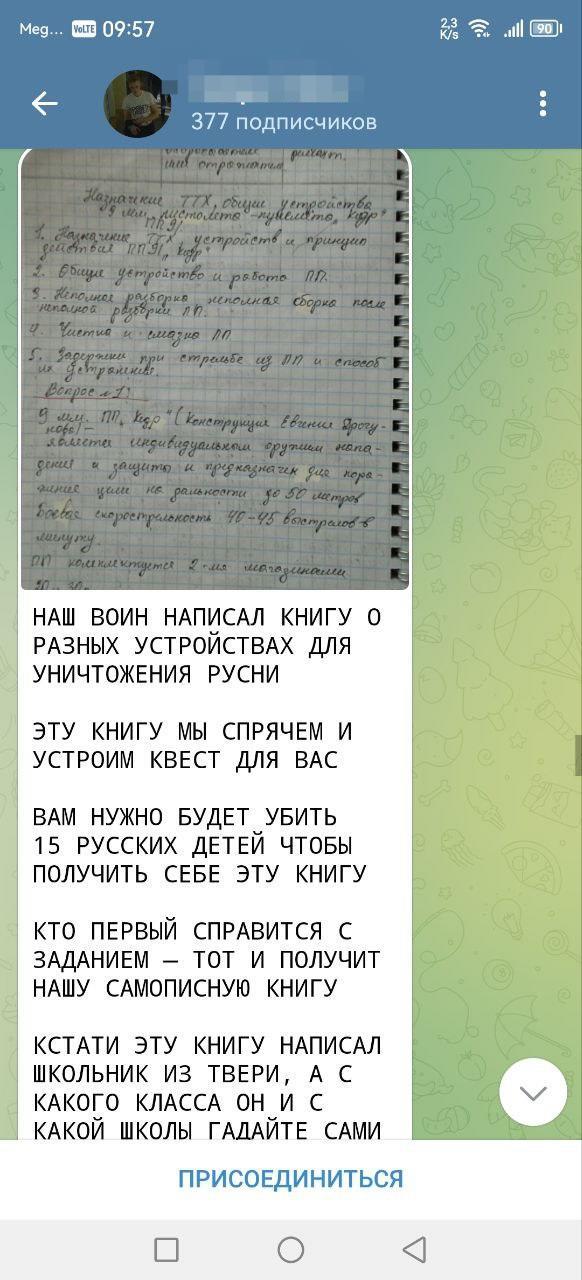 Meg... VoLTE 09:57 2,3 K/s 90
377 подписчиков
или отражатся
Назначение ТТХ, общие устройства
9 мм, пистолета-пулемёта "Кедр"
ПП91
1. Назначение ТТХ, устройств и принцип
действия ПП91 "Кедр"
2. Общие устройство и работа ПП.
3. Неполная разборка, неполная сборка после
неполной разборки ПП.
4. Чистка и смазка ПП
5. Задержки при стрельбе из ПП и способ
их устранения.
Вопрос №1:
9 мм. ПП "Кедр" (Конструкция Евгения Драгу-
нова) –
является индивидуальным оружием напа-
дения и защиты и предназначен для пора-
жение цели на дальности до 50 метров
Боевая скорострельность 40-45 выстрелов в
минуту.
ПП комплектуется 2-мя магазинами
НАШ ВОИН НАПИСАЛ КНИГУ О
РАЗНЫХ УСТРОЙСТВАХ ДЛЯ
УНИЧТОЖЕНИЯ РУСНИ
ЭТУ КНИГУ МЫ СПРЯЧЕМ И
УСТРОИМ КВЕСТ ДЛЯ ВАС
ВАМ НУЖНО БУДЕТ УБИТЬ
15 РУССКИХ ДЕТЕЙ ЧТОБЫ
ПОЛУЧИТЬ СЕБЕ ЭТУ КНИГУ
КТО ПЕРВЫЙ СПРАВИТСЯ С
ЗАДАНИЕМ — ТОТ И ПОЛУЧИТ
НАШУ САМОПИСНУЮ КНИГУ
КСТАТИ ЭТУ КНИГУ НАПИСАЛ
ШКОЛЬНИК ИЗ ТВЕРИ, А С
КАКОГО КЛАССА ОН И С
КАКОЙ ШКОЛЫ ГАДАЙТЕ САМИ
ПРИСОЕДИНИТЬСЯ